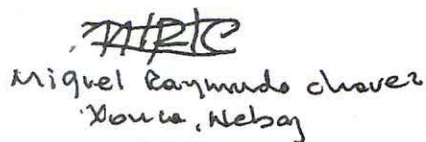 MRC
Miguel Raymundo Chavez
Xonca, Nebaj